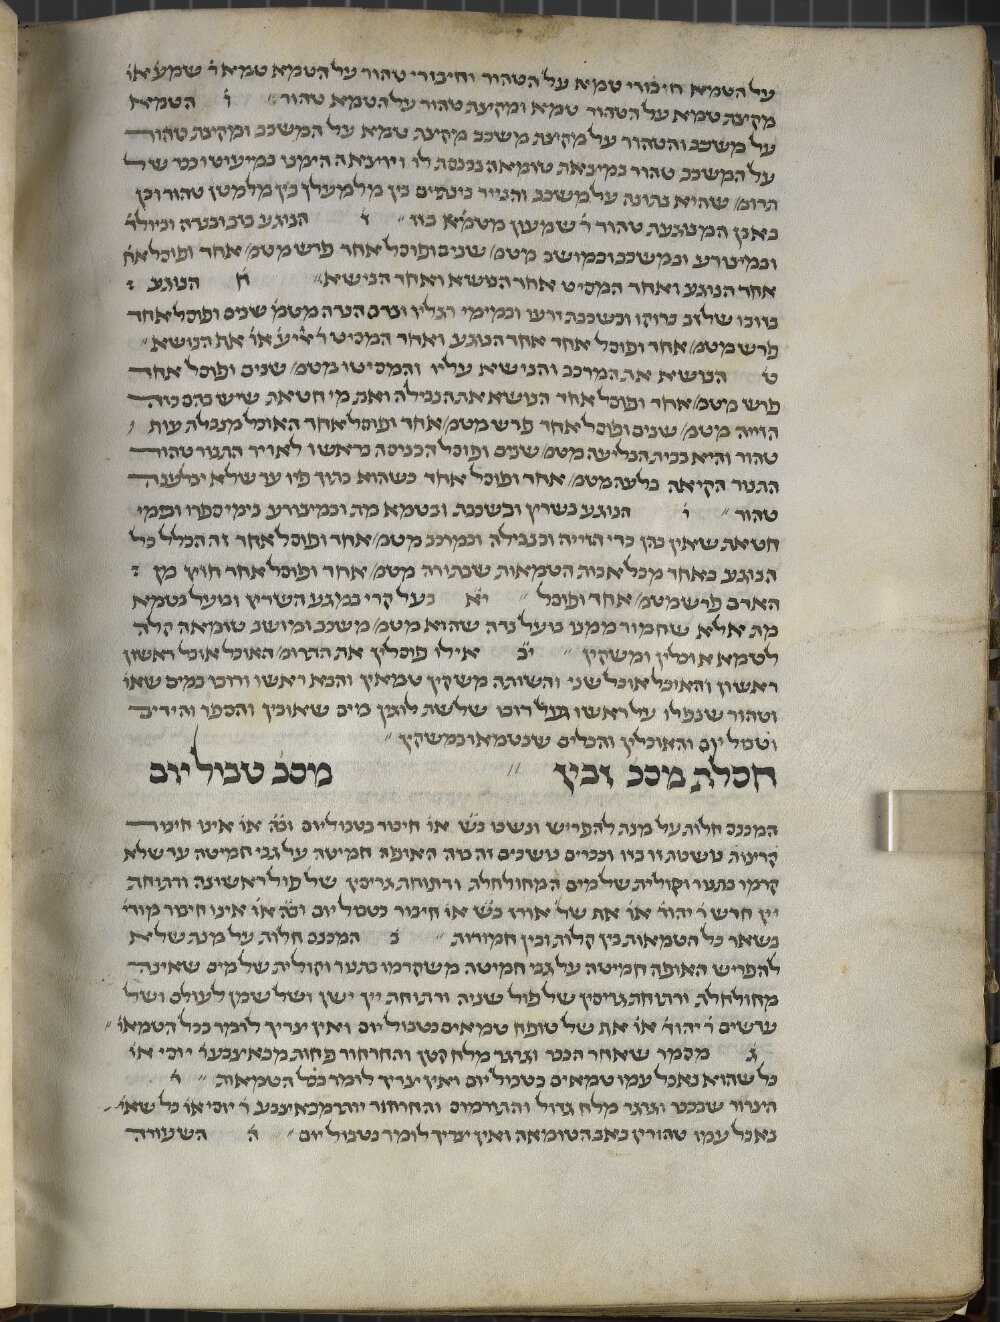 על הטמא חיבורי טמא על הטהור וחיבורי טהור על הטמא טמא ר׳ שמע׳ או׳
מקצת טמא על הטהור טמא ומקצת טהור על הטמא טהור ״ ו׳ הטמא
על משכב והטהור על מקצת משכב מקצת טמא על המשכב ומקצת טהור
על המשכב טהור נמצאת טומאה נכנסת לו ויוצאה הימנו במיעוטו ככר של
תרומ׳ שהיא נתונה על משכב והנייר בינתים בין מלמעלן בין מלמטן טהור וכן
באבן המנוגעת טהור ר׳ שמעון מטמא בזו ״ ז׳ הנוגע בזב ובזבה ובנדה וביולד׳
ובמצורע ובמשכב ובמושב מטמ׳ שנים ופוסל אחד פרש מטמ׳ אחד ופוסל אח׳
אחד הנוגע ואחד המסיט אחד הנושא ואחד הנישא ״ ח׳ הנוגע
בזובו של זב ברוקו ובשכבת זרעו ובמימי רגליו ובדם הנדה מטמ׳ שנים ופוסל אחד
פרש מטמ׳ אחד ופוסל אחד אחד הנוגע ואחד המסיט ר׳ אליע׳ או׳ אף הנושא ״
ט׳ הנושא את המרכב והנישא עליו והמסיטו מטמ׳ שנים ופוסל אחד
פרש מטמ׳ אחד ופוסל אחד הנושא את הנבילה ואת מי חטאת שיש בהם כדי
הזייה מטמ׳ שנים ופוסל אחד פרש מטמ׳ אחד ופוסל אחד האוכל מנבלת עוף
טהור והיא בבית הבליעה מטמ׳ שנים ופוסל הכניסה בראשו לאויר התנור טהור
התנור הקיאה בלעה מטמ׳ אחד ופוסל אחד כשהוא בתוך פיו עד שלא יבלענה
טהור ״ י׳ הנוגע בשרץ ובשכבת ובטמא מת ובמצורע בימי ספרו ובמי
חטאת שאין בהן כדי הזייה ובנבילה ובמרכב מטמ׳ אחד ופוסל אחד זה הכלל כל
הנוגע באחד מכל אבות הטמאות שבתורה מטמ׳ אחד ופוסל אחד חוץ מן
האדם פרש מטמ׳ אחד ופוסל ״ יא בעל קרי כמגע השרץ ובועל כטמא
מת אלא שחמור ממנו בועל נדה שהוא מטמ׳ משכב ומושב טומאה קלה
לטמא אוכלין ומשקין ״ יב אילו פוסלין את התרומ׳ האוכל אוכל ראשון
ראשון והאוכל אוכל שני והשותה משקין טמאין והבא ראשו ורובו במים שאו׳
וטהור שנפלו על ראשו ועל רובו שלשת לוגין מים שאובין והספר והידים
וטבול יום והאוכלין והכלים שנטמאו במשקין ״
חסלת מסכ׳ זבין ״ מסכ׳ טבול יום
המכנס חלות על מנת להפריש ונשכו בש׳ או׳ חיבור בטבול יום ובה׳ או׳ אינו חיבור
קרצות נושכות זו בזו וככרים נושכים זה בזה האופה חמיטה על גבי חמיטה עד שלא
קרמו בתנור וקולית של מים המחולחלת ורתיחת גריסין של פול ראשונה ורתיחת
יין חדש ר׳ יהוד׳ או׳ אף של אורז בש׳ או׳ חיבור בטבול יום ובה׳ או׳ אינו חיבור מודי׳
בשאר כל הטמאות בין קלות ובין חמורות ״ ב המכנס חלות על מנת שלא
להפריש האופה חמיטה על גבי חמיטה משקרמו בתנור וקולית של מים שאינה
מחולחלת ורתיחת גריסין של פול שניה ורתיחת יין ישן ושל שמן לעולם ושל
ערשים ר׳ יהוד׳ או׳ אף של טופח טמאים בטבול יום ואין צריך לומר בכל הטמאו׳ ״
ג׳ מסמר שאחר הככר וגרגר מלח קטן והחרחור פחות מכאיצבע ר׳ יוסי או׳
כל שהוא נאכל עמו טמאים בטבול יום ואין צריך לומר בכל הטמאות ״ ד׳
הצרור שבככר וגרגר מלח גדול והתורמוס והחרחור יותר מכאיצבע ר׳ יוסי או׳ כל שאי׳
נאכל עמו טהורין באב הטומאה ואין צריך לומר בטבול יום ״ ה׳ השעורה